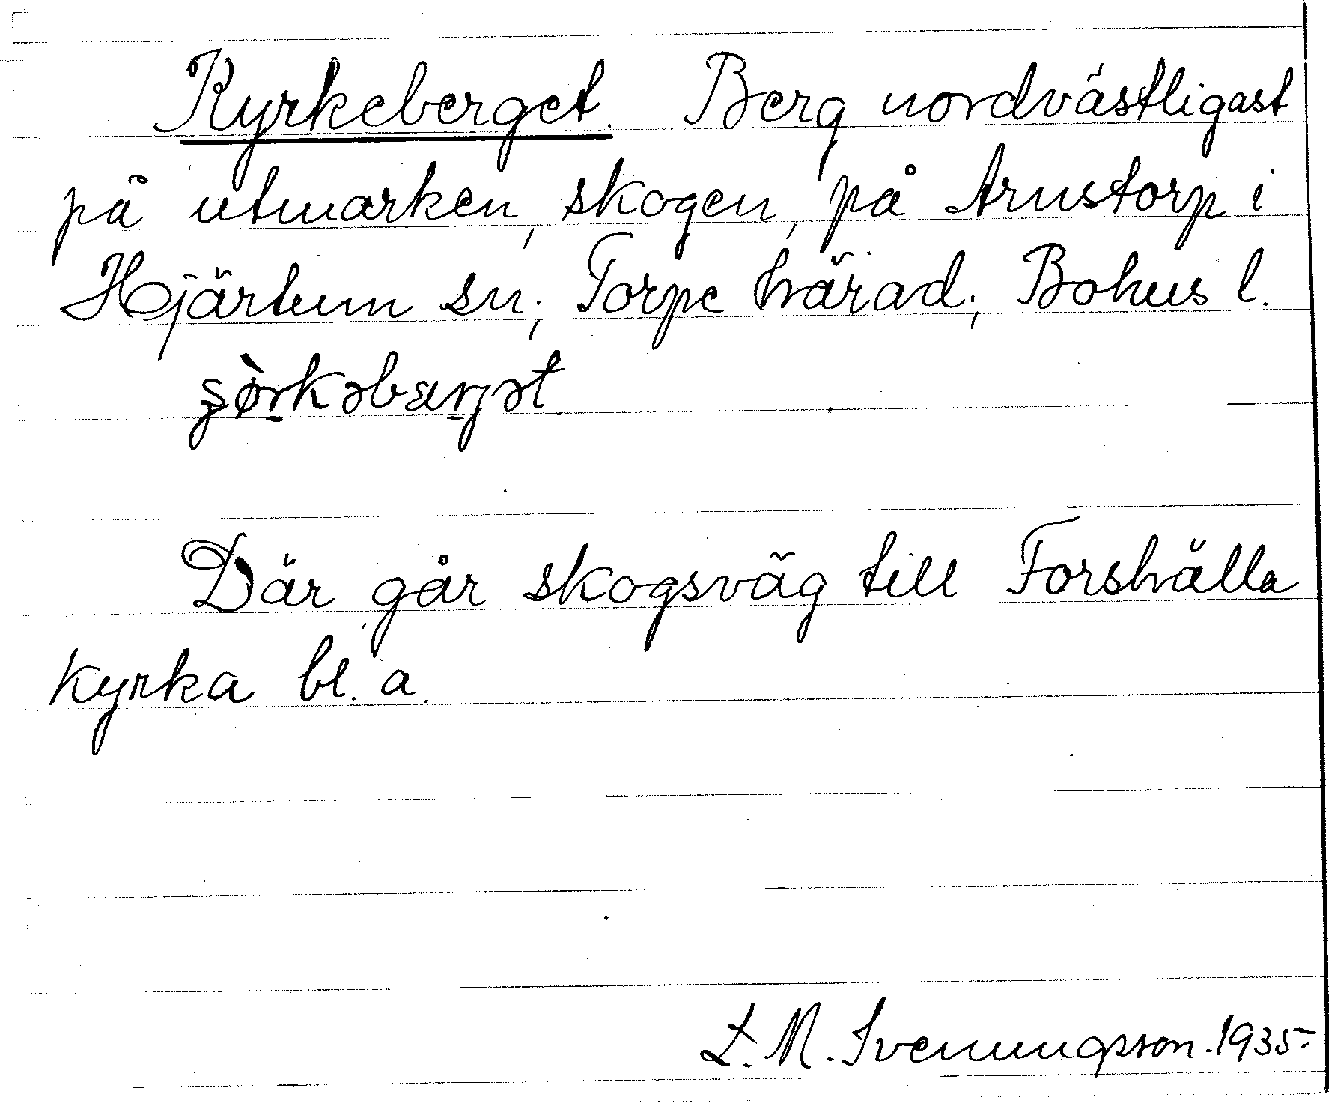 Kyrkeberget. Berg nordvästligast
på utmarken, skogen, på Arnstorp i
Hjärtum sn; Torpe härad; Bohus l.
Där går skogsväg till Forshälla
kyrka bl. a.
L. M. Svenungsson. 1935.